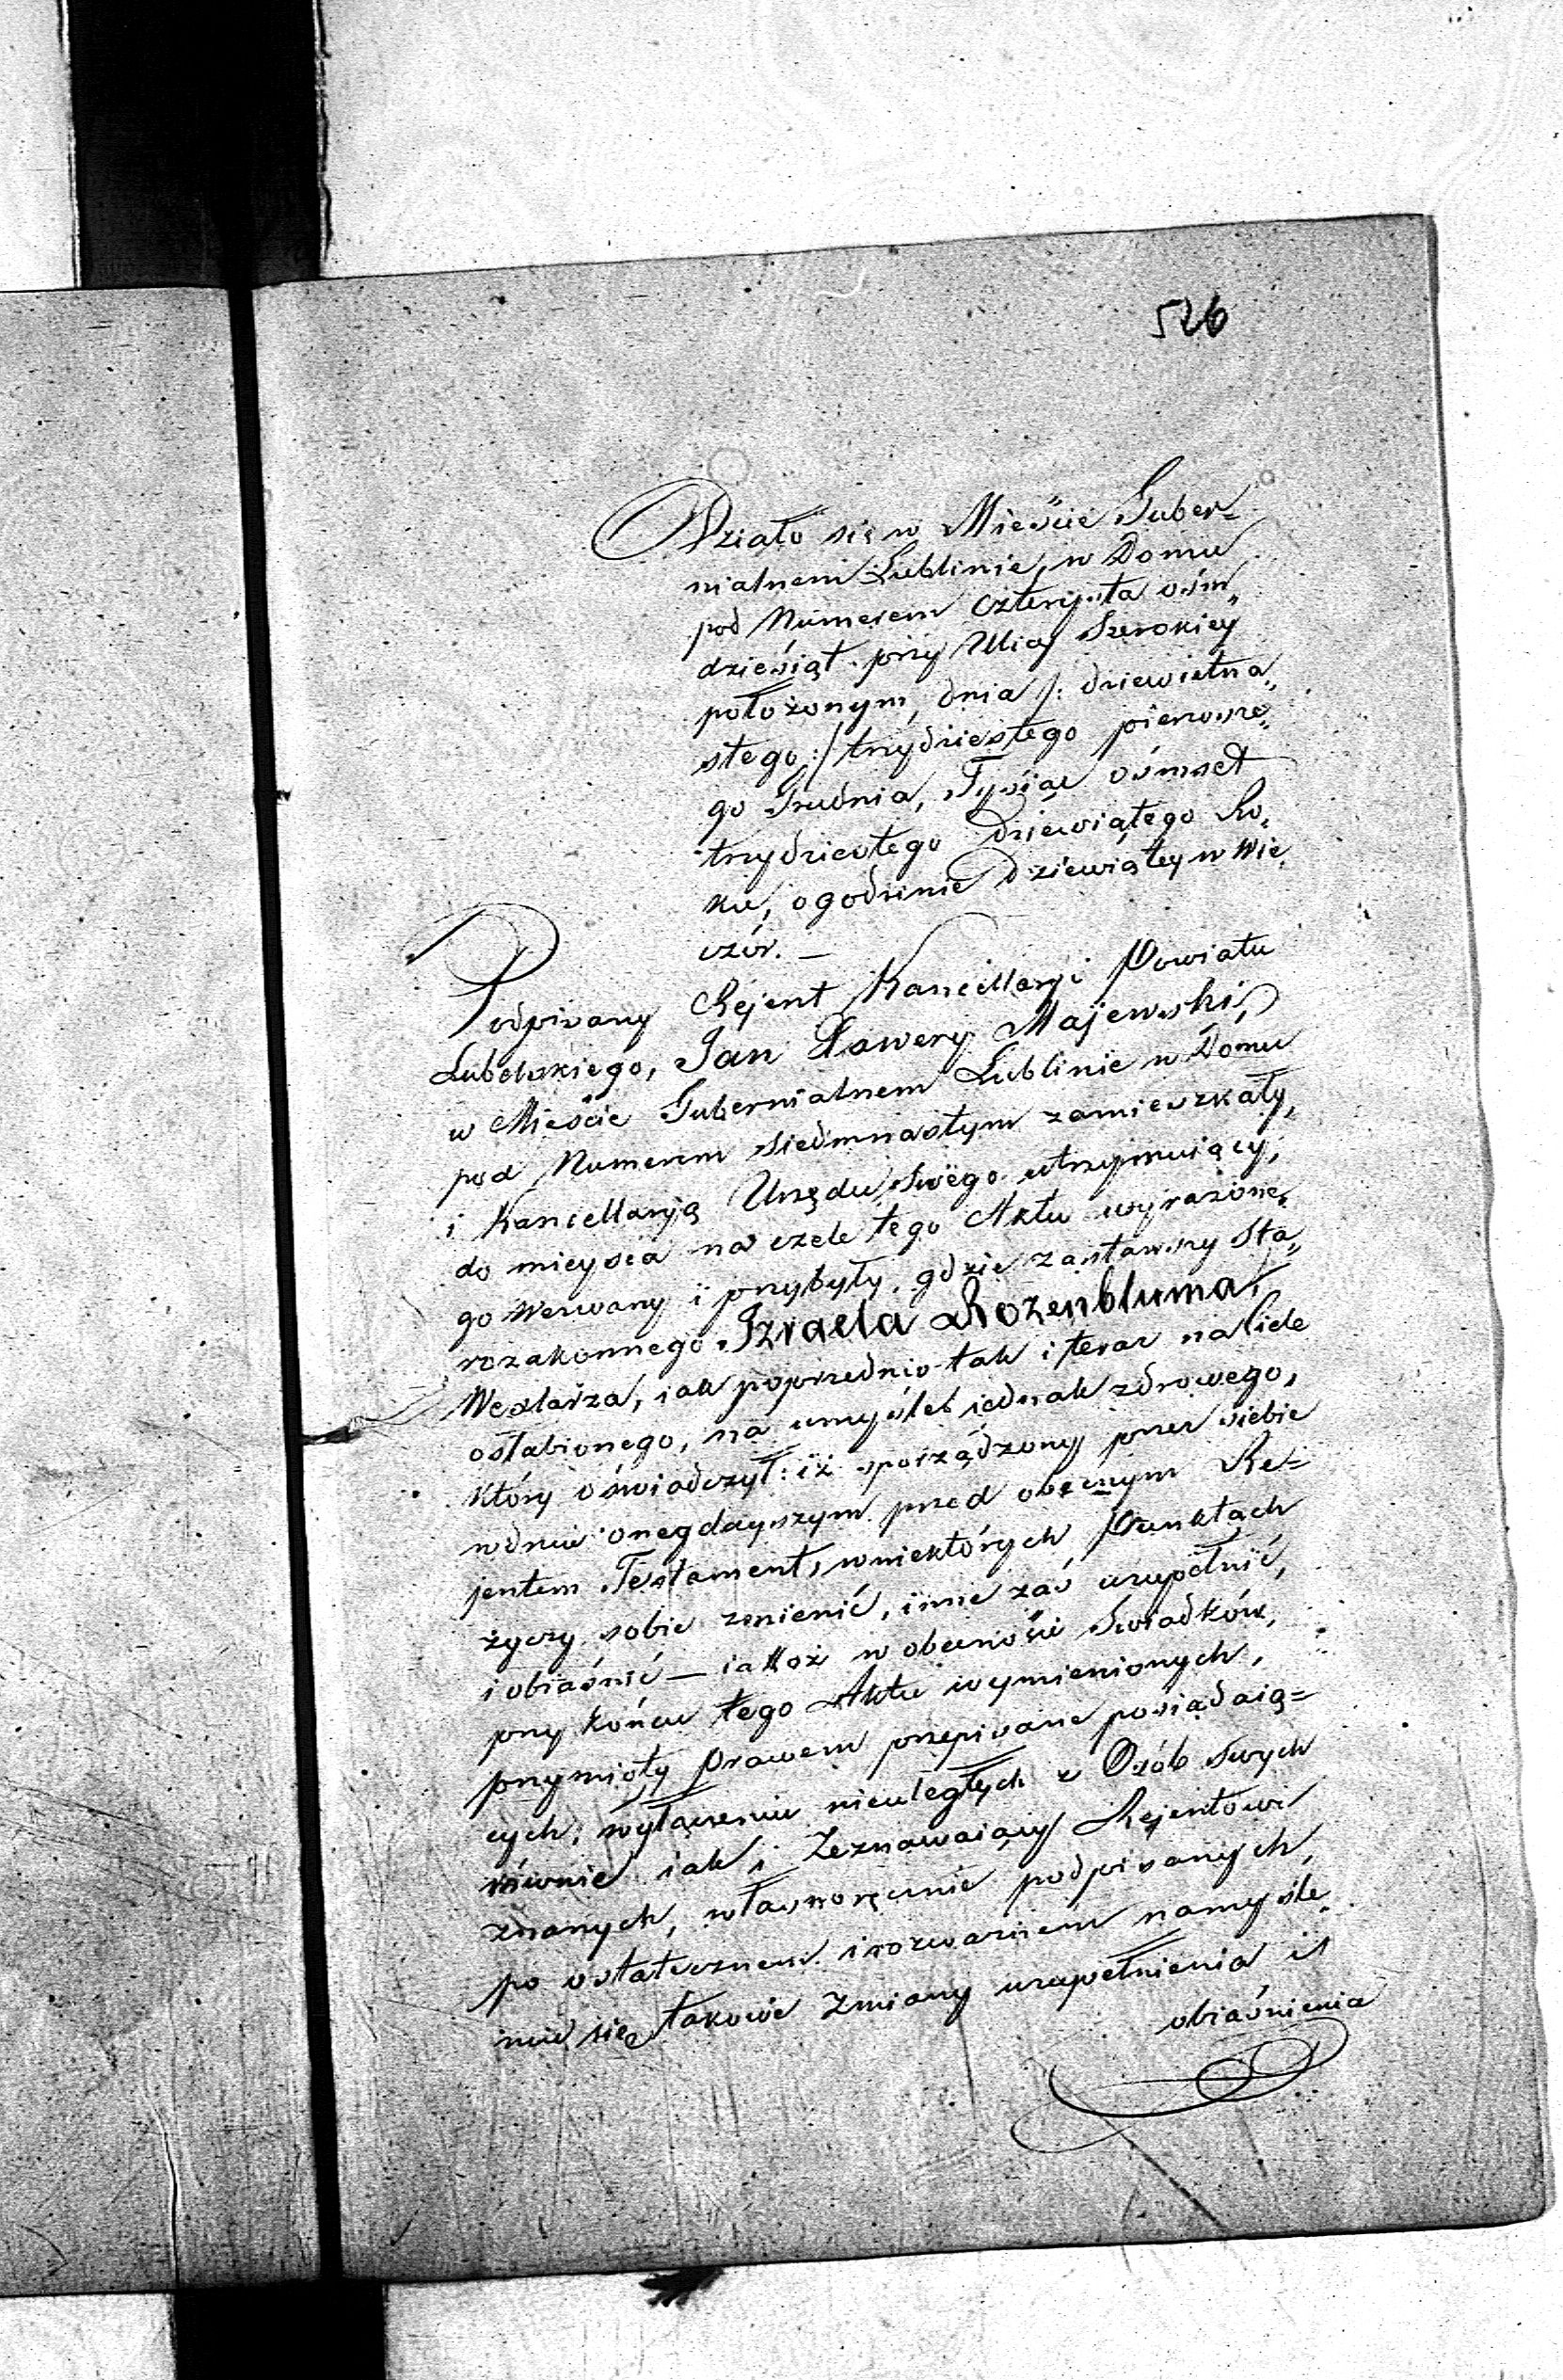 526
Działo się w Mieście Guber=
nialnem Lublinie, w Domu
pod Numerem czterysta ośm„
dziesiąt przy Ulicy Szerokiey
położonym, dnia /: dziewietna„
stego :/ trzydziestego pierwsze„
go Grudnia, Tysiąc ośmset
trzydziestego Dziewiątego Ro„
ku, o godzinie Dziewiątey w Wie„
czór. —
Podpisany Rejent Kancellaryi Powiatu
Lubelskiego, Jan Xawery Majewski,
w Mieście Gubernialnem Lublinie w Domu
pod Numerem siedmnastym zamieszkały,
i Kancellaryą Urzędu swego utrzymuiący,
do mieysca na czele tego Aktu wyrażone„
go wezwany i przybyły, gdzie zastawszy Sta„
rozakonnego Izraela Rozenbluma
Wexlarza, iak poprzednio tak i teraz na Ciele
osłabionego, na umyśle iednak zdrowego,
który oświadczył: iż sporządzony przez siebie
w dniu onegdayszym przed obecnym Re=
jentem Testament, w niektórych Punktach
życzy sobie zmienić, inne zaś uzupełnić,
i obiaśnić — iakoż w obecności Świadków,
przy końcu tego Aktu wymienionych,
przymioty Prawem przepisane posiadaią=
cych, wyłączeniu nieuległych z Osób swych
równie iak i Zeznawaiący Rejentowi
znanych, własnoręcznie podpisanych,
po ostatecznem i rozważnem namyśle„
niu się takowe zmiany uzupełnienia i
obiaśnienia